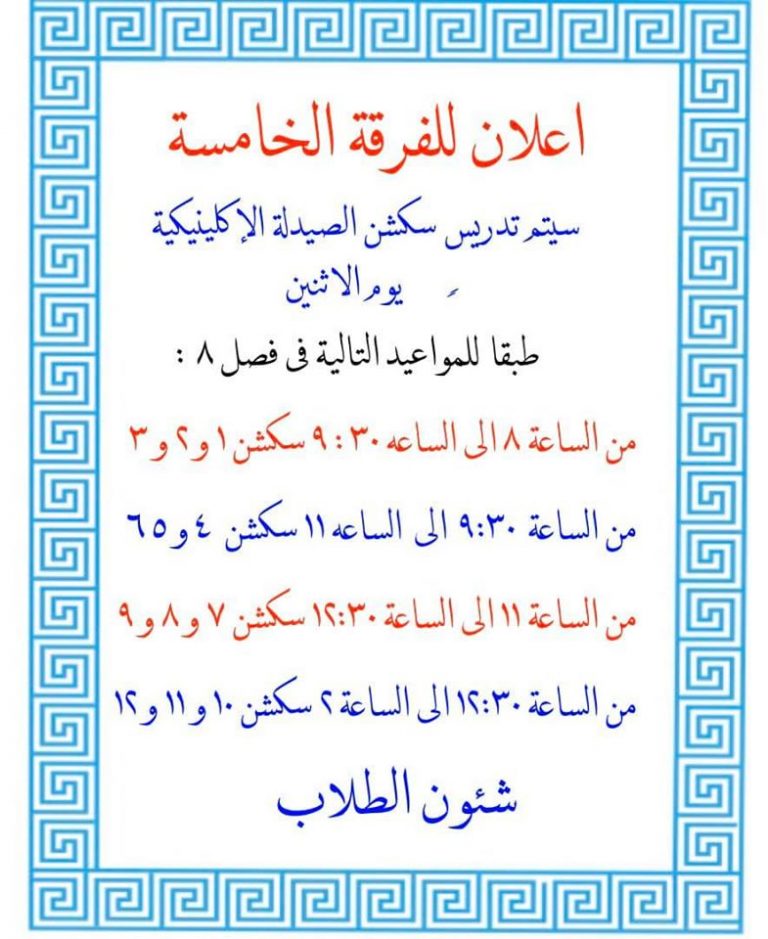 اعلان للفرقة الخامسة
سيتم تدريس سكشن الصيدلة الإكلينيكية
يوم الاثنين
طبقا للمواعيد التالية فى فصل ٨ :
من الساعة ٨ الى الساعه ٩:٣٠ سكشن ١ و ٢ و ٣
من الساعة ٩:٣٠ الى الساعه ١١ سكشن ٤ و ٦٥
من الساعة ١١ الى الساعة ١٢:٣٠ سكشن ٧ و ٨ و ٩
من الساعة ١٢:٣٠ الى الساعة ٢ سكشن ١٠ و ١١ و ١٢
شئون الطلاب